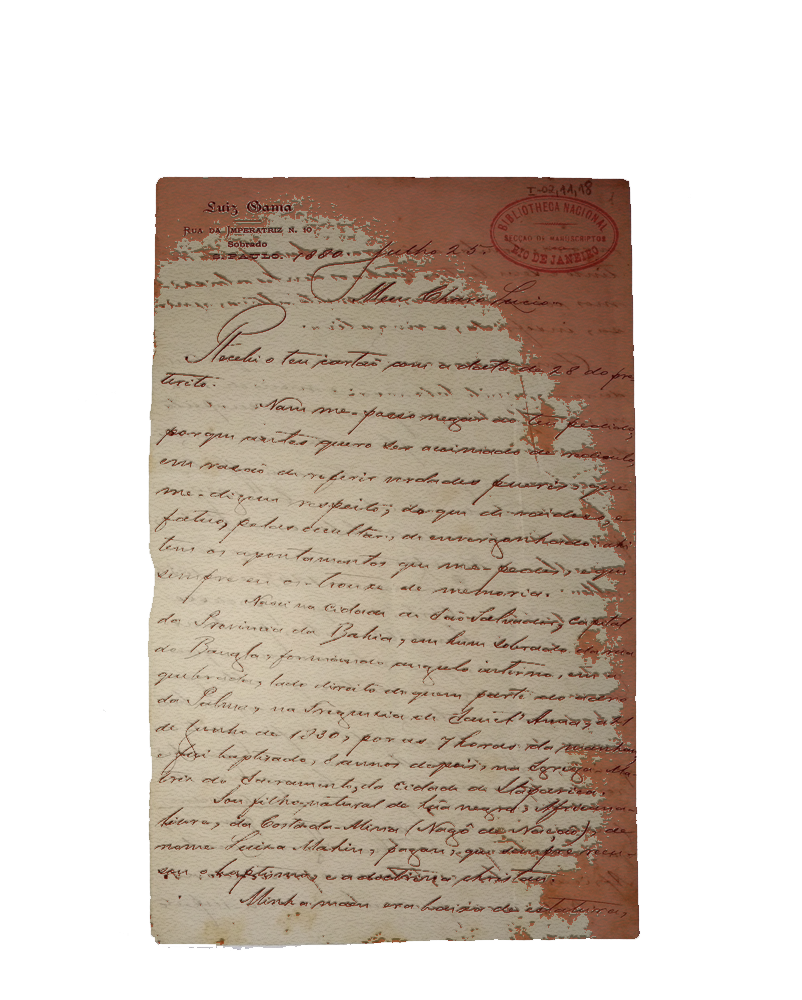 I-02,11,18
Luiz Gama
Rua da Imperatriz N. 10
Sobrado
S. PAULO.
BIBLIOTHECA NACIONAL
SECÇÃO DE MANUSCRIPTOS
RIO DE JANEIRO
1880. Julho 25.
Meu Charo Lucio
Recebi o teu cartão com a data de 28 do pre
terito.
Nam me-posso negar ao teu pedido,
porque antes quero ser acoimado de ridiculo,
em rasão de referir verdades pueris, que
me-dizem respeito, do que de vaidoso, e
fatuo, pelas occultar, de envergonhado: ahi
tens os apontamentos que me-pedes, e que
sempre eu os-trouxe de memoria.
Nasci na cidade de São Salvador, capital
da Provincia da Bahia, em hum sobrado da rua
do Bangla, formando angulo interno, em a
quebrada, lado direito de quem parte do adro
da Palma, na Freguezia de Sanct'Anna, a 21
de Junho de 1830, por as 7 horas da manhan,
e fui baptizado, 8 annos depois, na Egreja-Ma-
triz do Sacramento, da cidade de Itaparica.
Sou filho natural de uma negra, Africana-
livre, da Costa da-Mina (Nagô de Nação), de
nome Luiza Mahin, pagan, que sempre recu-
sou o baptismo, e a doctrina christan.
Minha mãe era baixa de estatura,